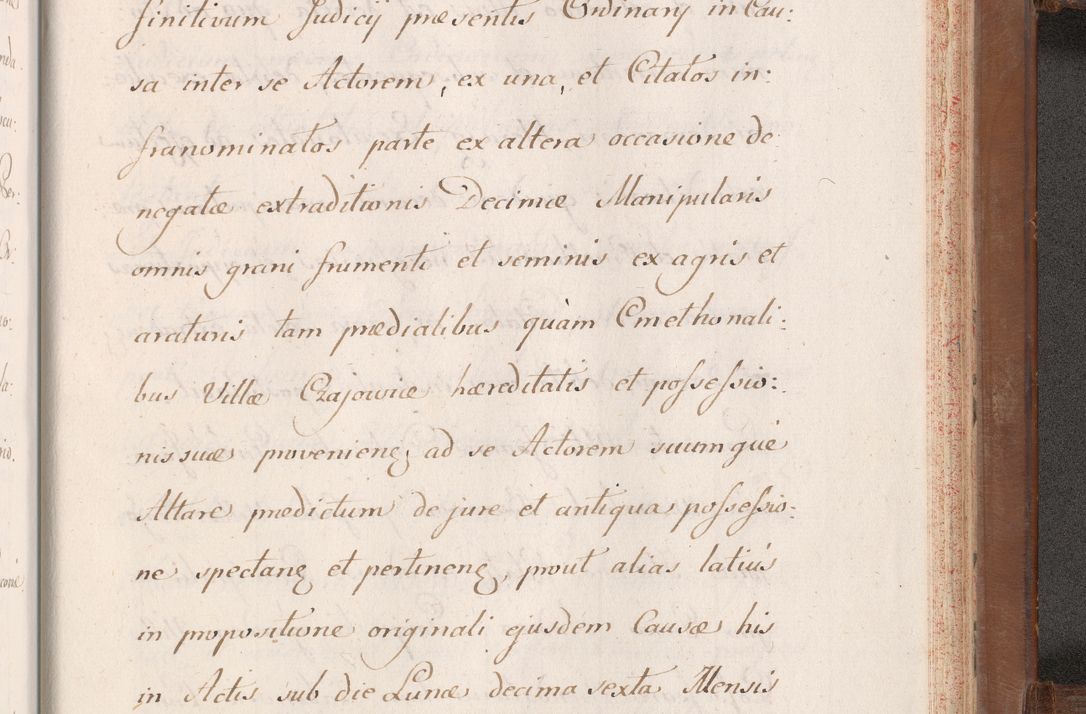 finitivum Judicij præsentis Ordinarij in Cau:
sa inter se Actorem, ex una, et Citatos in:
franominatos parte ex altera occasione de
negatæ extraditionis Decimæ Manipularis
omnis grani frumenti et seminis ex agris et
araturis tam prædialibus quàm Cmethonali:
bus Villæ Czajowice hæreditatis et possessio:
nis suæ provenien ad se Actorem suumquè
Altare prædictum de jure et antiqua possessio-
ne spectan et pertinen, prout alias latiùs
in propositione originali ejusdem Causæ his
in Actis sub die Lunæ decima sexta Mensis